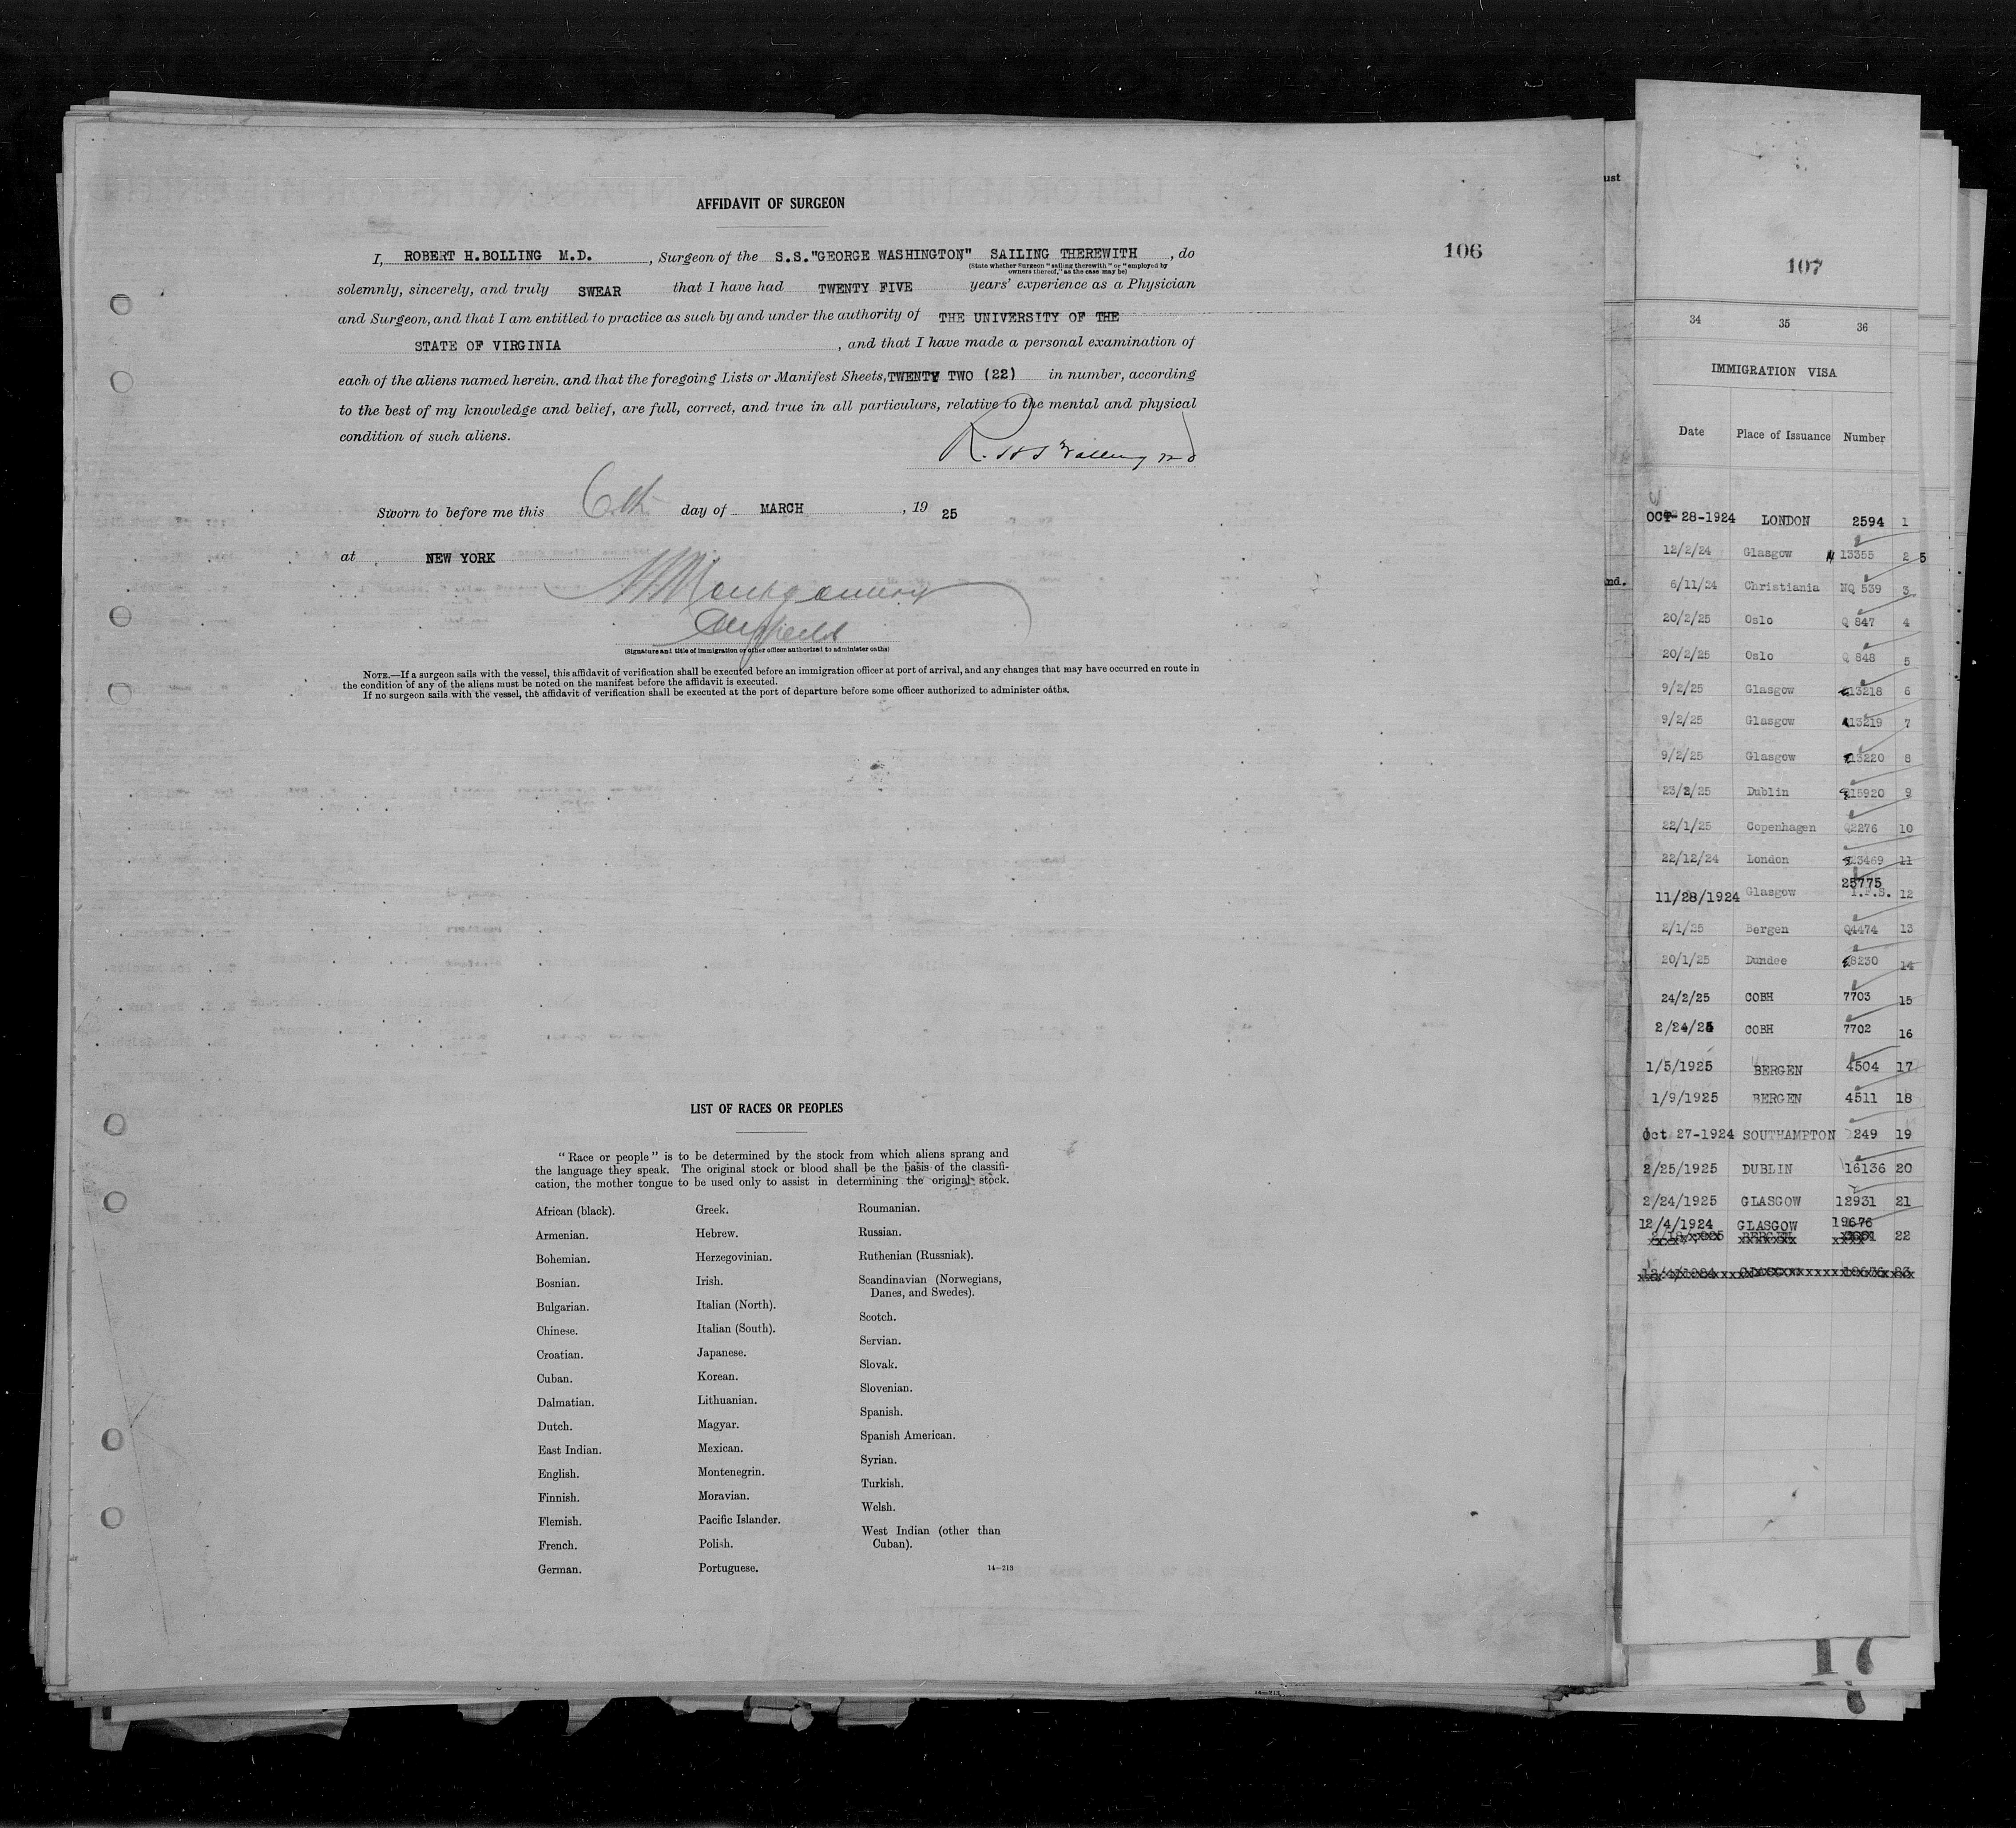 AFFIDAVIT OF SURGEON
106
I, ROBERT H.BOLLING M.D. , Surgeon of the S.S."GEORGE WASHINGTON" SAILING THEREWITH , do
(State whether Surgeon "sailing therewith" or "employed by
owners thereof," as the case may be)
solemnly, sincerely, and truly SWEAR that I have had TWENTY FIVE years' experience as a Physician
and Surgeon, and that I am entitled to practice as such by and under the authority of THE UNIVERSITY OF THE
STATE OF VIRGINIA , and that I have made a personal examination of
each of the aliens named herein, and that the foregoing Lists or Manifest Sheets, TWENTY TWO (22) in number, according
to the best of my knowledge and belief, are full, correct, and true in all particulars, relative to the mental and physical
condition of such aliens.
R. H Bolling MD
Sworn to before me this 6th day of MARCH , 19 25
at NEW YORK
Montgomery
(Signature and title of immigration or other officer authorized to administer oaths)
NOTE.—If a surgeon sails with the vessel, this affidavit of verification shall be executed before an immigration officer at port of arrival, and any changes that may have occurred en route in
the condition of any of the aliens must be noted on the manifest before the affidavit is executed.
If no surgeon sails with the vessel, the affidavit of verification shall be executed at the port of departure before some officer authorized to administer oaths.
LIST OF RACES OR PEOPLES
"Race or people" is to be determined by the stock from which aliens sprang and
the language they speak. The original stock or blood shall be the basis of the classifi-
cation, the mother tongue to be used only to assist in determining the original stock.
African (black).
Armenian.
Bohemian.
Bosnian.
Bulgarian.
Chinese.
Croatian.
Cuban.
Dalmatian.
Dutch.
East Indian.
English.
Finnish.
Flemish.
French.
German.
Greek.
Hebrew.
Herzegovinian.
Irish.
Italian (North).
Italian (South).
Japanese.
Korean.
Lithuanian.
Magyar.
Mexican.
Montenegrin.
Moravian.
Pacific Islander.
Polish.
Portuguese.
Roumanian.
Russian.
Ruthenian (Russniak).
Scandinavian (Norwegians,
Danes, and Swedes).
Scotch.
Servian.
Slovak.
Slovenian.
Spanish.
Spanish American.
Syrian.
Turkish.
Welsh.
West Indian (other than
Cuban).
14—213
ust
nd.
107
34 35 36
IMMIGRATION VISA
Date Place of Issuance Number
OCT-28-1924 LONDON 2594 1
12/2/24 Glasgow 13355 2 5
6/11/24 Christiania NQ 539 3
20/2/25 Oslo Q 847 4
20/2/25 Oslo Q 848 5
9/2/25 Glasgow 13218 6
9/2/25 Glasgow 13219 7
9/2/25 Glasgow 13220 8
23/2/25 Dublin 15920 9
22/1/25 Copenhagen Q2276 10
22/12/24 London 23469 11
25775
11/28/1924 Glasgow 12
2/1/25 Bergen Q4474 13
20/1/25 Dundee 8230 14
24/2/25 COBH 7703 15
2/24/25 COBH 7702 16
1/5/1925 BERGEN 4504 17
1/9/1925 BERGEN 4511 18
Oct 27-1924 SOUTHAMPTON 249 19
2/25/1925 DUBLIN 16136 20
2/24/1925 GLASGOW 12931 21
12/4/1924 GLASGOW 19676
BERGEN 22
12/4/1924 GLASGOW 19676 23
17